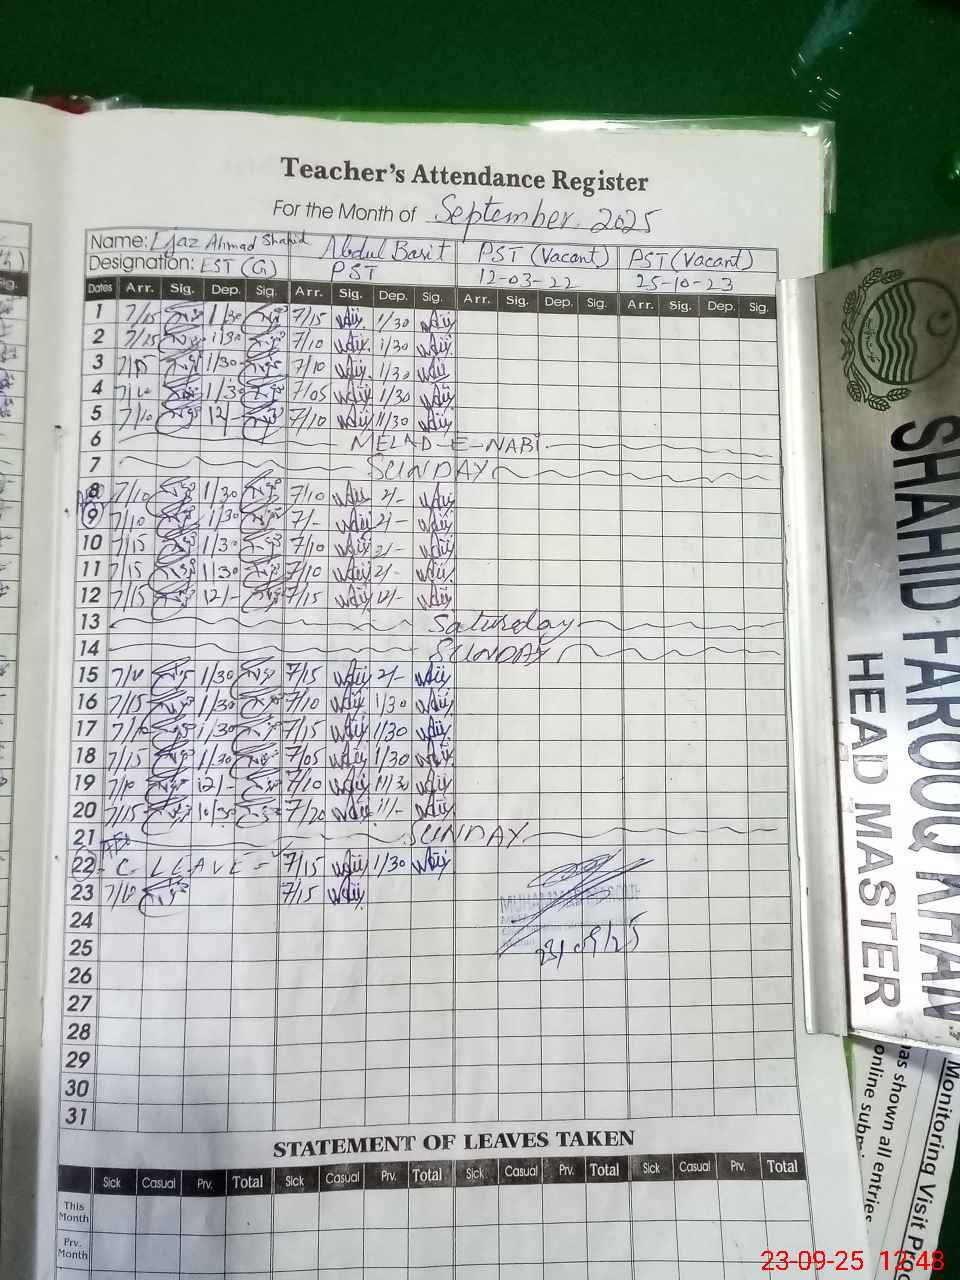 Teacher's Attendance Register
For the Month of September, 2025
Name: Ejaz Ahmad Shahid Abdul Basit PST (Vacant) PST (Vacant)
Designation: EST (G) PST 12-03-22 25-10-23
Dates Arr. Sig. Dep. Sig. Arr. Sig. Dep. Sig. Arr. Sig. Dep. Sig. Arr. Sig. Dep. Sig.
1 7/15 1/30 7/15 1/30
2 7/15 1/30 7/10 1/30
3 7/15 1/30 7/10 1/30
4 7/10 1/30 7/05 1/30
5 7/10 12/- 7/10 11/30
6 MELAD-E-NABI
7 SUNDAY
8 7/10 1/30 7/10 2/-
9 7/10 1/30 7/- 2/-
10 7/15 1/30 7/10 2/-
11 7/15 1/30 7/10 2/-
12 7/15 12/- 7/15 12/-
13 Saturday
14 SUNDAY
15 7/10 1/30 7/15 2/-
16 7/15 1/30 7/10 1/30
17 7/10 1/30 7/15 1/30
18 7/15 1/30 7/05 1/30
19 7/10 12/- 7/10 11/30
20 7/15 10/30 7/20 11/-
21 SUNDAY
22 C. LEAVE 7/15 1/30
23 7/10 7/15
24
25 23/09/25
26
27
28
29
30
31
STATEMENT OF LEAVES TAKEN
Sick Casual Prv. Total Sick Casual Prv. Total Sick Casual Prv. Total Sick Casual Prv. Total
This Month
Prv. Month
SHAHID FAROOQ KHAN
HEAD MASTER
Monitoring Visit
has shown all entries
online
23-09-25 12:48